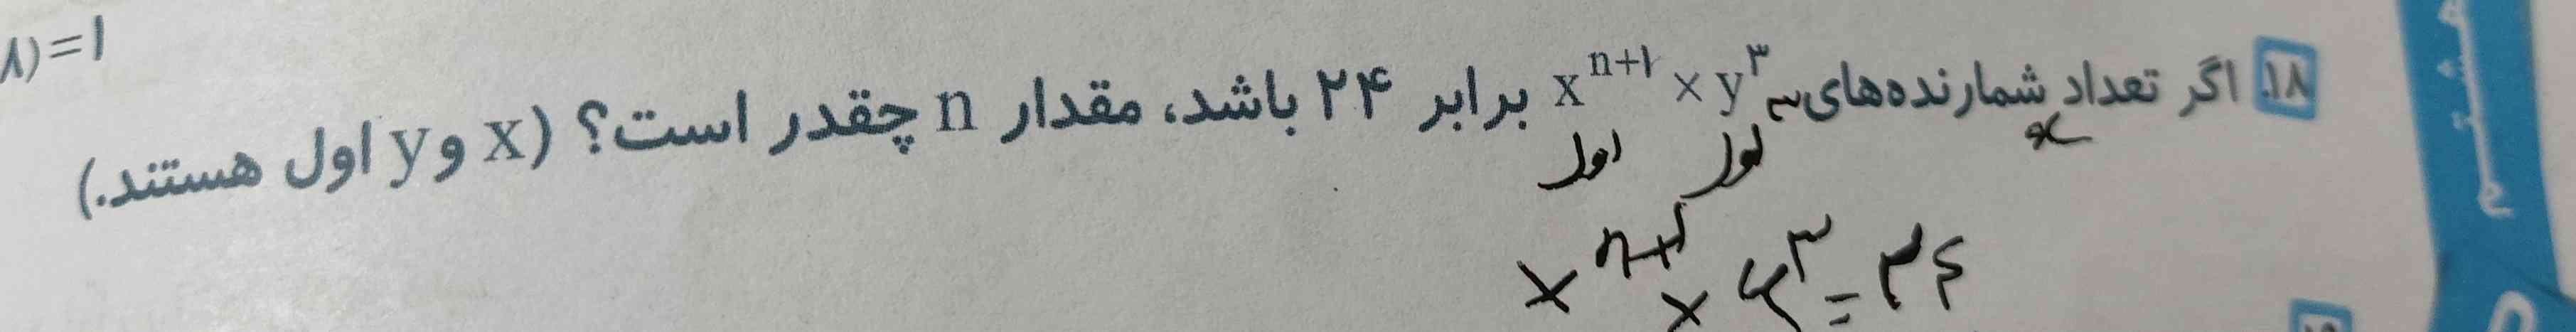 ۸) = ۱
۱۸. اگر تعداد شمارنده‌های xⁿ⁺¹ × y³ برابر ۲۴ باشد، مقدار n چقدر است؟ (x و y اول هستند.)
اول اول
xⁿ⁺¹ × y³ = ۲۴